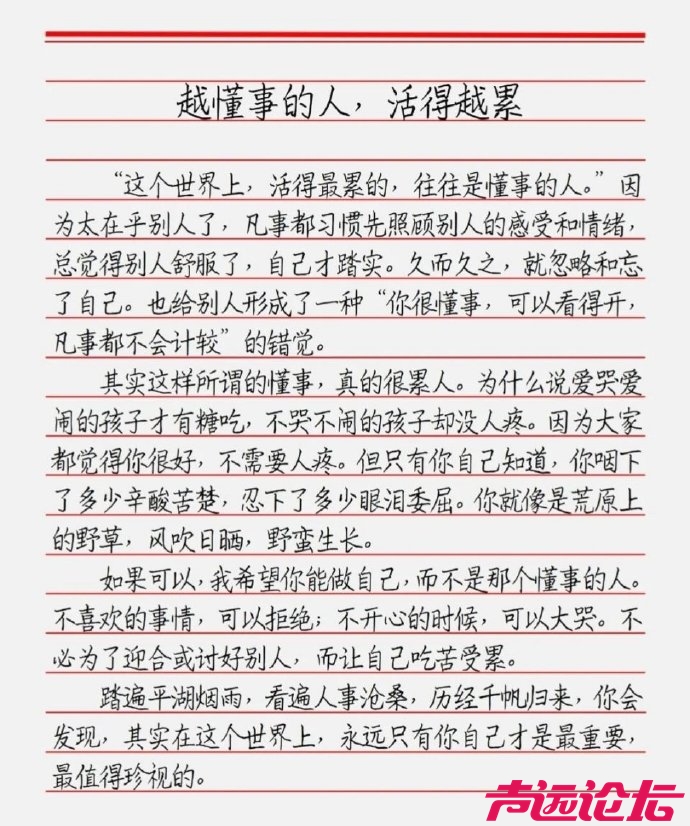 越懂事的人，活得越累
“这个世界上，活得最累的，往往是懂事的人。”因
为太在乎别人了，凡事都习惯先照顾别人的感受和情绪，
总觉得别人舒服了，自己才踏实。久而久之，就忽略和忘
了自己。也给别人形成了一种“你很懂事，可以看得开，
凡事都不会计较”的错觉。
其实这样所谓的懂事，真的很累人。为什么说爱哭爱
闹的孩子才有糖吃，不哭不闹的孩子却没人疼。因为大家
都觉得你很好，不需要人疼。但只有你自己知道，你咽下
了多少辛酸苦楚，忍下了多少眼泪委屈。你就像是荒原上
的野草，风吹日晒，野蛮生长。
如果可以，我希望你能做自己，而不是那个懂事的人。
不喜欢的事情，可以拒绝；不开心的时候，可以大哭。不
必为了迎合或讨好别人，而让自己吃苦受累。
踏遍平湖烟雨，看遍人事沧桑，历经千帆归来，你会
发现，其实在这个世界上，永远只有你自己才是最重要，
最值得珍视的。
声远论坛